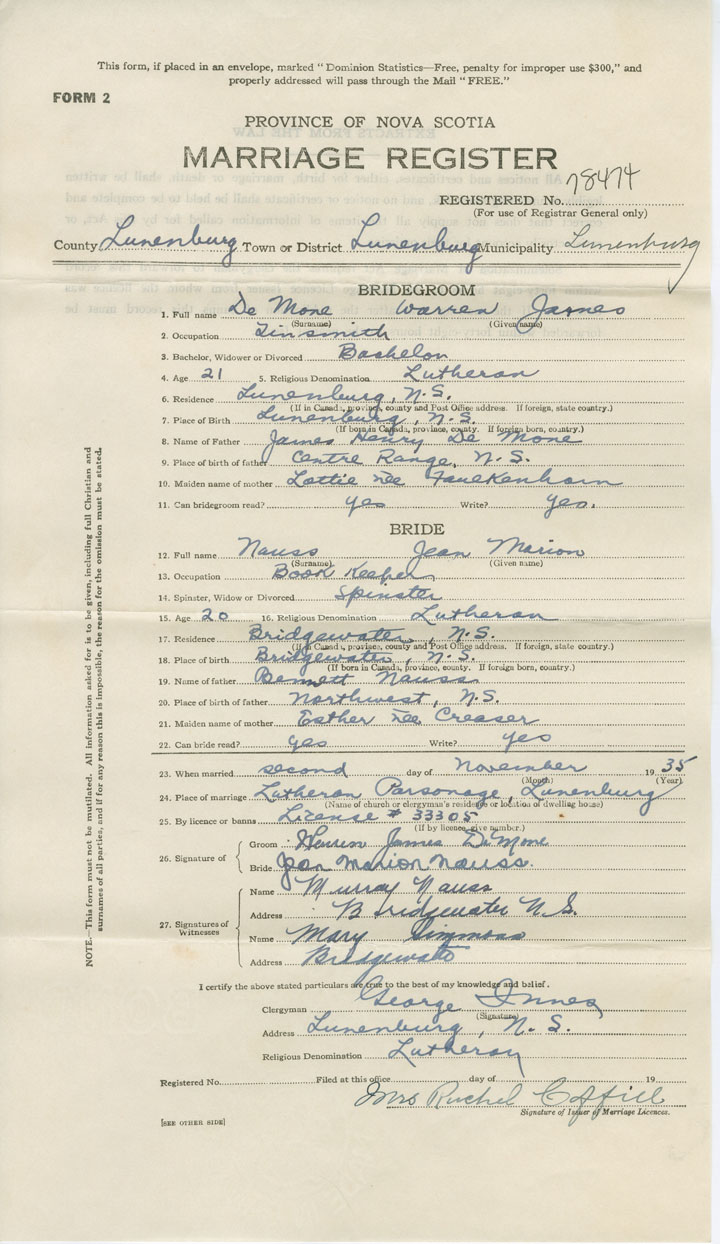 This form, if placed in an envelope, marked "Dominion Statistics—Free, penalty for improper use $300," and
properly addressed will pass through the Mail "FREE."
FORM 2
PROVINCE OF NOVA SCOTIA
MARRIAGE REGISTER
REGISTERED No. 78474
(For use of Registrar General only)
County Lunenburg Town or District Lunenburg Municipality Lunenburg
BRIDEGROOM
1. Full name De Mone Warren James
(Surname) (Given name)
2. Occupation Tinsmith
3. Bachelor, Widower or Divorced Bachelor
4. Age 21 5. Religious Denomination Lutheran
6. Residence Lunenburg, N.S.
(If in Canada, province, county and Post Office address. If foreign, state country.)
7. Place of Birth Lunenburg, N.S.
(If born in Canada, province, county. If foreign born, country.)
8. Name of Father James Henry De Mone
9. Place of birth of father Centre Range, N.S.
10. Maiden name of mother Lottie née Faulkenhorn
11. Can bridegroom read? yes Write? yes.
BRIDE
12. Full name Nauss Jean Marion
(Surname) (Given name)
13. Occupation Book Keeper
14. Spinster, Widow or Divorced Spinster
15. Age 20 16. Religious Denomination Lutheran
17. Residence Bridgewater, N.S.
(If in Canada, province, county and Post Office address. If foreign, state country.)
18. Place of birth Bridgewater, N.S.
(If born in Canada, province, county. If foreign born, country.)
19. Name of father Bennett Nauss
20. Place of birth of father Northwest, N.S.
21. Maiden name of mother Esther née Creaser
22. Can bride read? yes Write? yes
23. When married second day of November 1935
(Month) (Year)
24. Place of marriage Lutheran Parsonage, Lunenburg
(Name of church or clergyman's residence or location of dwelling house)
25. By licence or banns License # 33305
(If by licence, give number.)
26. Signature of
Groom Warren James DeMone
Bride Jean Marion Nauss.
27. Signatures of Witnesses
Name Murray Nauss
Address Bridgewater N.S.
Name Mary Simmons
Address Bridgewater
I certify the above stated particulars are true to the best of my knowledge and belief.
Clergyman George Innes
(Signature)
Address Lunenburg, N.S.
Religious Denomination Lutheran
Registered No. Filed at this office day of 19
Mrs Rachel Coffill
Signature of Issuer of Marriage Licences.
[SEE OTHER SIDE]
NOTE.—This form must not be mutilated. All information asked for is to be given, including full Christian and
surnames of all parties, and if for any reason this is impossible, the reason for the omission must be stated.